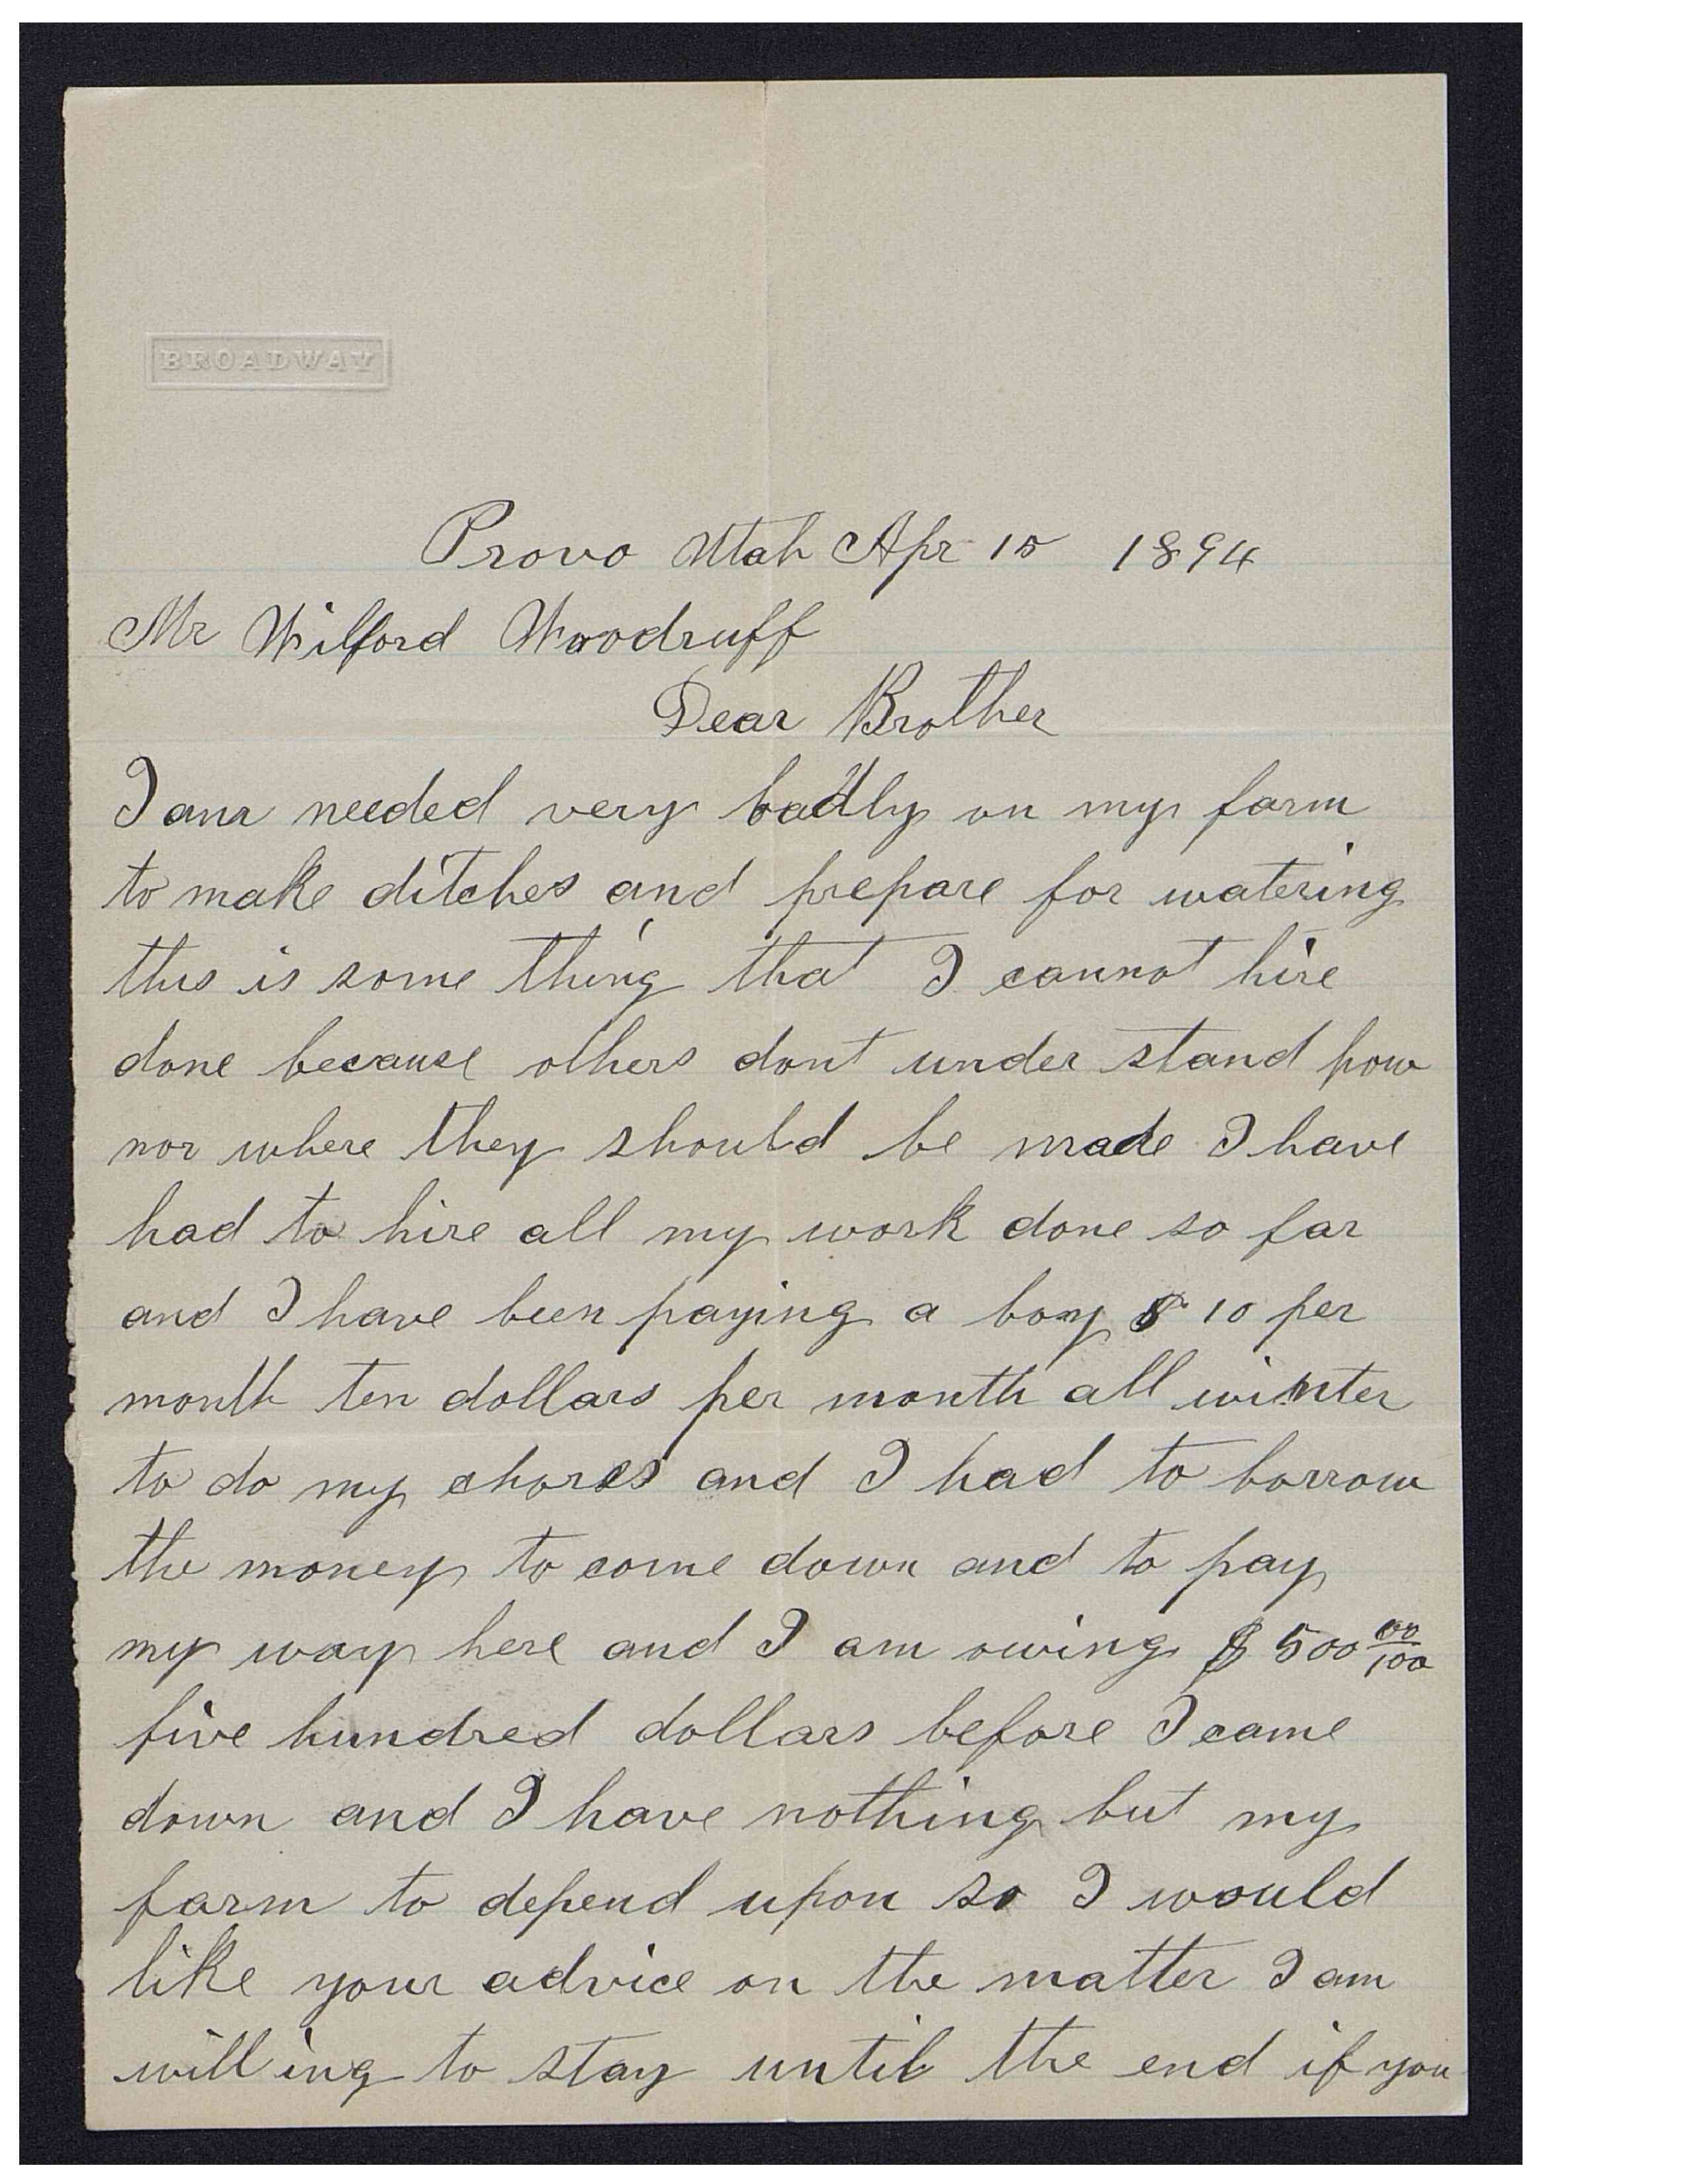 BROADWAY
Provo Utah Apr 15 1894
Mr Wilford Woodruff
Dear Brother
I am needed very badly on my farm
to make ditches and prepare for watering
this is some thing that I cannot hire
done because others dont under stand how
nor where they should be made I have
had to hire all my work done so far
and I have been paying a boy $ 10 per
month ten dollars per month all winter
to do my chores and I had to borrow
the money to come down and to pay
my way here and I am owing $ 500 00/100
five hundred dollars before I came
down and I have nothing but my
farm to depend upon so I would
like your advice on the matter I am
willing to stay until the end if you